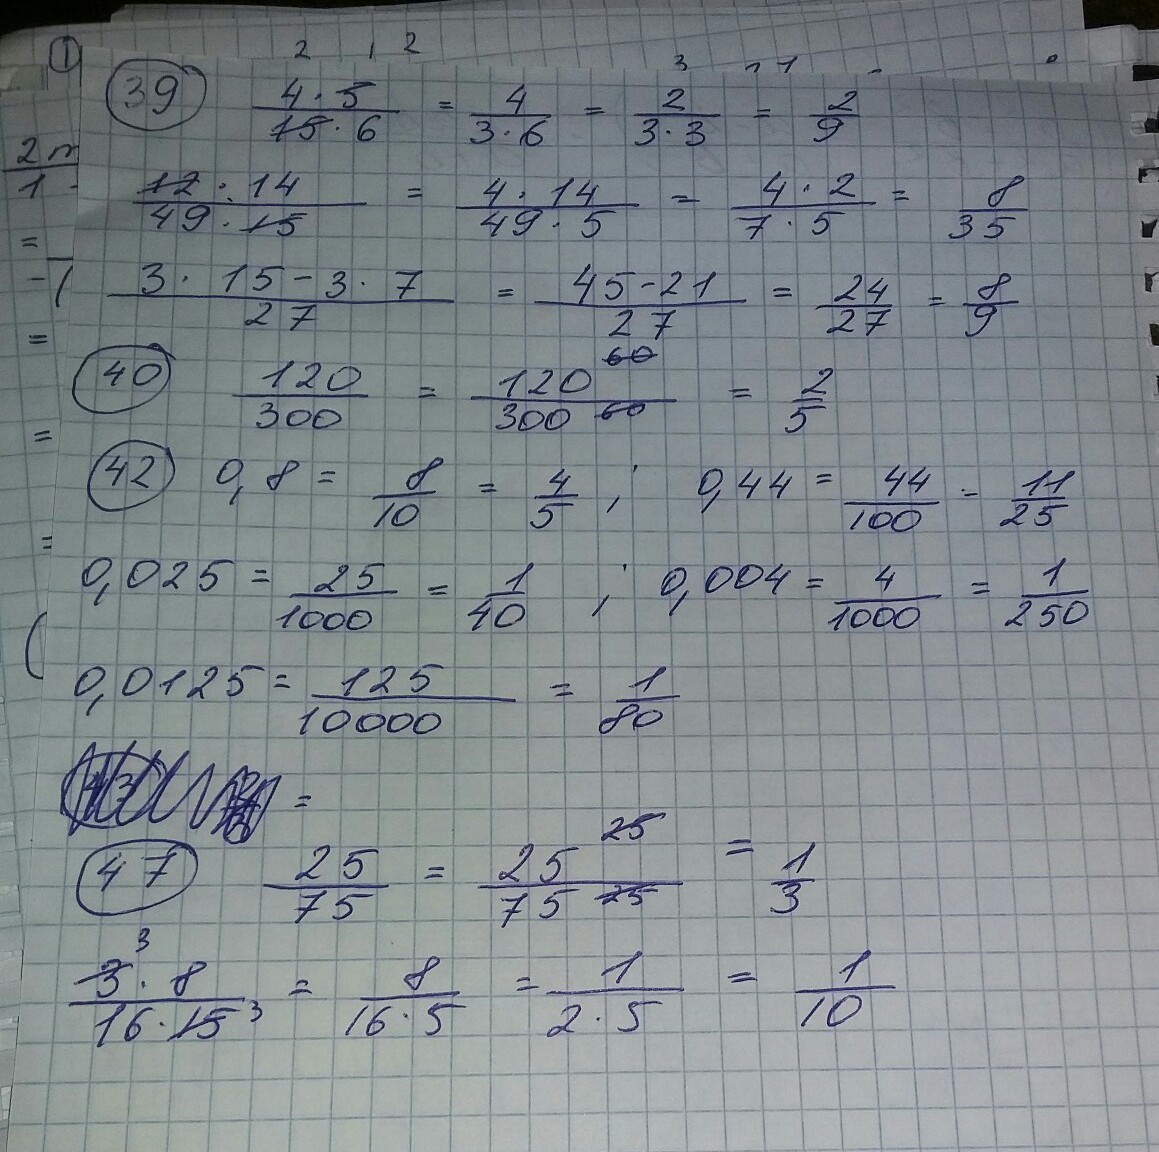 ① 2 1 2 3
39 4·5/15·6 = 4/3·6 = 2/3·3 = 2/9
12·14/49·15 = 4·14/49·5 = 4·2/7·5 = 8/35
3·15-3·7/27 = 45-21/27 = 24/27 = 8/9
40 120/300 = 120 60/300 60 = 2/5
42 0,8 = 8/10 = 4/5 ; 0,44 = 44/100 = 11/25
0,025 = 25/1000 = 1/40 ; 0,004 = 4/1000 = 1/250
0,0125 = 125/10000 = 1/80
=
47 25/75 = 25 25/75 25 = 1/3
3 3·8/16·15 3 = 8/16·5 = 1/2·5 = 1/10